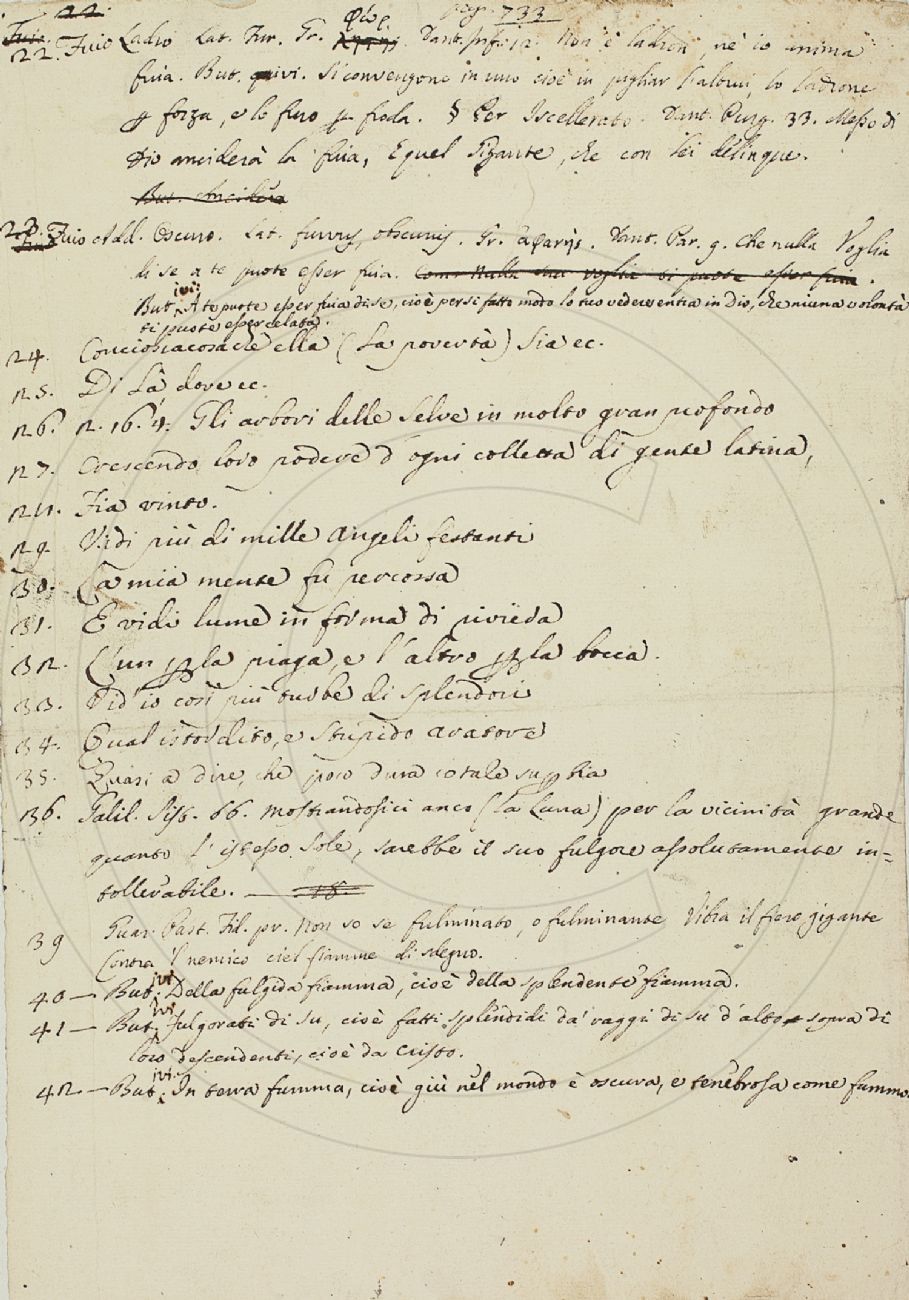 22. pag. 733
Fuio.
22. Fuio Ladro Lat. Fur. Gr. φώρ. Dant. Inf. 12. Non è ladron, nè io anima
fuia. But. quivi. Si convengono in uno cioè in pigliar l'altrui, lo ladrone
p forza, e lo furo p froda. § Per Iscellerato. Dant. Purg. 33. Messo di
Dio anciderà la fuia, E quel Gigante, che con lei delinque.
But. Anciderà
23. Fuio Add. Oscuro. Lat. furvus, obscurus. Gr. ἀφανής. Dant. Par. 9. Che nulla Voglia
di se a te puote esser fuia. come nulla tua voglia ti puote esser fuia.
But. ivi. A te puote esser fuia di se, cioè per sì fatto modo lo tuo vedere entra in Dio, che niuna volontà
ti puote esser celata.
24. Conciosiacosachè ella (la povertà) sia ec.
25. Di là dove ec.
26. 2. 16. 4. Gli arbori delle selve in molto gran profondo
27. Crescendo loro podere d'ogni colletta di gente latina,
28. Fia vinto.
29. Vidi più di mille Angeli festanti
30. La mia mente fu percossa
31. E vidi lume in forma di riviera
32. L'un p la piaga, e l'altro p la bocca.
33. Vid'io così più turbe di splendori
34. Qual istordito, e stupido aratore
35. Quasi a dire, che poco dura cotale supbia
36. Galil. Sist. 66. mostrandosici anco (la Luna) per la vicinità grande
quanto l'istesso Sole, sarebbe il suo fulgore assolutamente in=
tollerabile. — 18.
39 Guar. Past. Fid. pr. Non so se fulminato, o fulminante Vibra il fiero gigante
Contra 'l nemico ciel fiamme di sdegno.
40 — But. ivi. Della fulgida fiamma, cioè della splendente fiamma.
41 — But. ivi. Fulgorati di su, cioè fatti splendidi da' raggi di su d'alto sopra di
loro descendenti, cioè da Cristo.
42 — But. ivi. In terra fumma, cioè giù nel mondo è oscura, e tenebrosa come fummo.